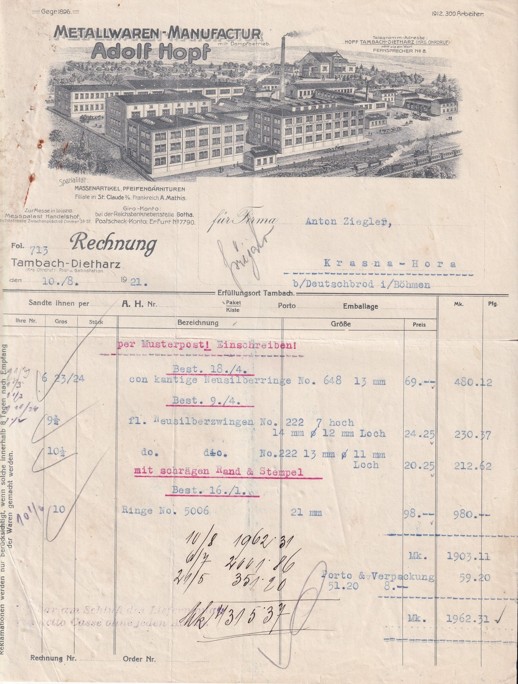 Gegr. 1896.
1912, 300 Arbeiter
METALLWAREN-MANUFACTUR
mit Dampfbetrieb.
Adolf Hopf
Telegramm-Adresse
HOPF TAMBACH-DIETHARZ
FERNSPRECHER, Nr 8.
Spezialität:
MASSENARTIKEL, PFEIFENGARNITUREN
Filiale in St. Claude i/J. Frankreich A. Mathis.
Zur Messe in Leipzig
Messpalast Handelshof,
Giro-Konto:
bei der Reichsbanknebenstelle Gotha.
Postscheck-Konto, Erfurt Nr 7790.
für Firma
Anton Ziegler,
Krasna-Hora
b/Deutschbrod i/Böhmen
Fol. 713
Rechnung
Tambach-Dietharz
den 10./8. 1921.
Erfüllungsort Tambach.
Sandte Ihnen per A. H. Nr. ½ Paket Kiste Porto Emballage Mk. Pfg.
Ihre Nr. Gros Stück Bezeichnung Größe Preis
per Musterpost! Einschreiben!
Best. 18./4.
6 23/24 con kantige Neusilberringe No. 648 13 mm 69.-- 480.12
Best. 9./4.
9½ fl. Neusilberzwingen No. 222 7 hoch
14 mm ø 12 mm Loch 24.25 230.37
10½ do. dto. No.222 13 mm ø 11 mm
Loch 20.25 212.62
mit schrägen Rand & Stempel
Best. 16/1.
10 Ringe No. 5006 21 mm 98.-- 980.--
10/8 1962 31
Mk. 1903.11
6/7 2001.86
Porto & Verpackung 59.20
21/5 351.20
51.20 8.--
Mk 4315 37
Mk. 1962.31
Reklamationen werden nur berücksichtigt, wenn solche innerhalb 8 Tagen nach Empfang
der Waren gemacht werden.
Rechnung Nr. Order Nr.